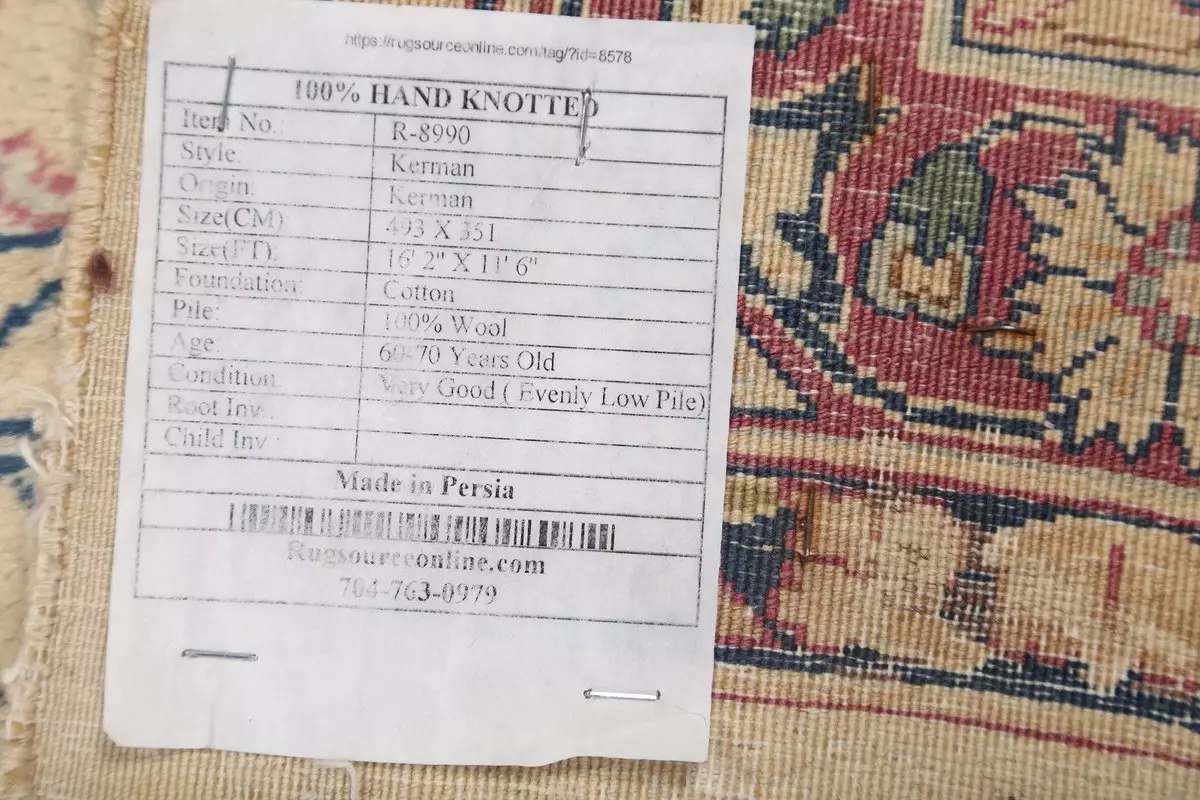 https://rugsourceonline.com/tag/?id=8578
100% HAND KNOTTED
Item No.: R-8990
Style: Kerman
Origin: Kerman
Size(CM) 493 X 351
Size(FT). 16' 2" X 11' 6"
Foundation: Cotton
Pile: 100% Wool
Age. 60-70 Years Old
Condition Very Good ( Evenly Low Pile)
Root Inv :
Child Inv :
Made in Persia
Rugsourceonline.com
704-763-0979